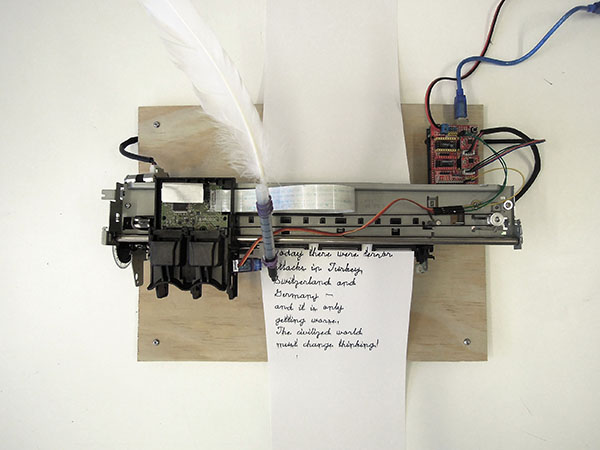 Today there were terror
attacks in Turkey,
Switzerland and
Germany —
and it is only
getting worse.
The civilized world
must change thinking!